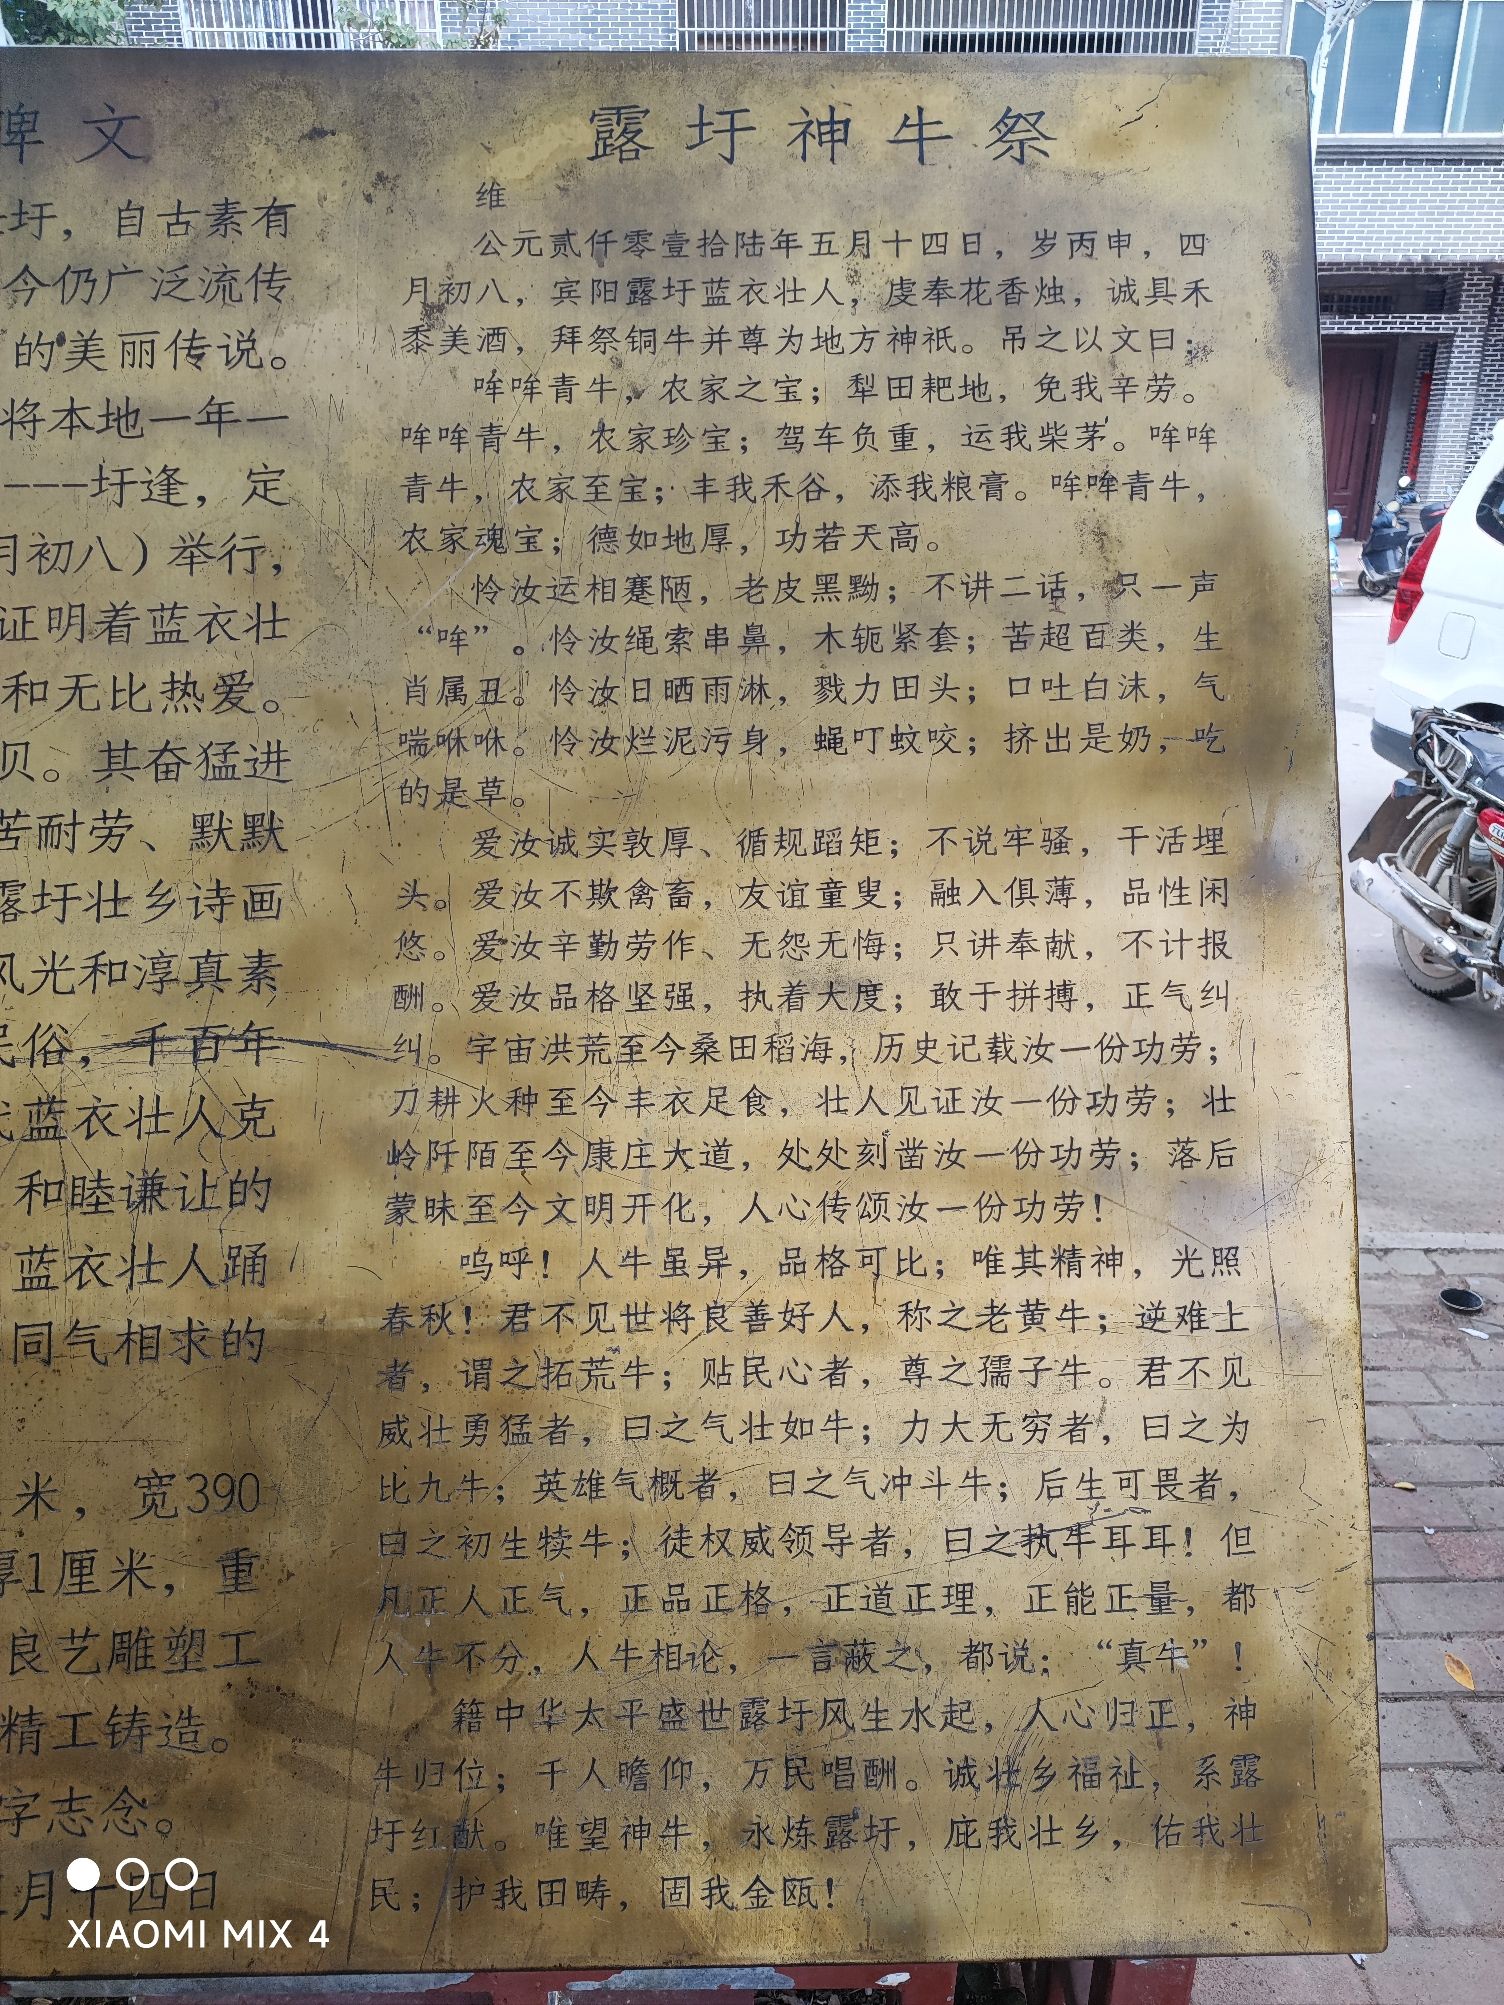 碑文
圩，自古素有
今仍广泛流传
的美丽传说。
将本地一年一
---圩逢，定
月初八）举行，
证明着蓝衣壮
和无比热爱。
贝。其奋猛进
苦耐劳、默默
露圩壮乡诗画
风光和淳真素
民俗，千百年
代蓝衣壮人克
和睦谦让的
蓝衣壮人踊
同气相求的
米，宽390
厚1厘米，重
良艺雕塑工
精工铸造。
字志念。
月十四日
露圩神牛祭
维
公元贰仟零壹拾陆年五月十四日，岁丙申，四
月初八，宾阳露圩蓝衣壮人，虔奉花香烛，诚具禾
黍美酒，拜祭铜牛并尊为地方神祇。吊之以文曰：
哞哞青牛，农家之宝；犁田耙地，免我辛劳。
哞哞青牛，农家珍宝；驾车负重，运我柴茅。哞哞
青牛，农家至宝；丰我禾谷，添我粮膏。哞哞青牛，
农家魂宝；德如地厚，功若天高。
怜汝运相蹇陋，老皮黑黝；不讲二话，只一声
“哞”。怜汝绳索串鼻，木轭紧套；苦超百类，生
肖属丑。怜汝日晒雨淋，戮力田头；口吐白沫，气
喘咻咻。怜汝烂泥污身，蝇叮蚊咬；挤出是奶，吃
的是草。
爱汝诚实敦厚、循规蹈矩；不说牢骚，干活埋
头。爱汝不欺禽畜，友谊童叟；融入俱薄，品性闲
悠。爱汝辛勤劳作、无怨无悔；只讲奉献，不计报
酬。爱汝品格坚强，执着大度；敢于拼搏，正气纠
纠。宇宙洪荒至今桑田稻海，历史记载汝一份功劳；
刀耕火种至今丰衣足食，壮人见证汝一份功劳；壮
岭阡陌至今康庄大道，处处刻凿汝一份功劳；落后
蒙昧至今文明开化，人心传颂汝一份功劳！
呜呼！人牛虽异，品格可比；唯其精神，光照
春秋！君不见世将良善好人，称之老黄牛；逆难上
者，谓之拓荒牛；贴民心者，尊之孺子牛。君不见
威壮勇猛者，曰之气壮如牛；力大无穷者，曰之为
比九牛；英雄气概者，曰之气冲斗牛；后生可畏者，
曰之初生犊牛；徒权威领导者，曰之执牛耳耳！但
凡正人正气，正品正格，正道正理，正能正量，都
人牛不分，人牛相论，一言蔽之，都说：“真牛”！
籍中华太平盛世露圩风生水起，人心归正，神
牛归位；千人瞻仰，万民唱酬。诚壮乡福祉，系露
圩红猷。唯望神牛，永炼露圩，庇我壮乡，佑我壮
民；护我田畴，固我金瓯！
XIAOMI MIX 4